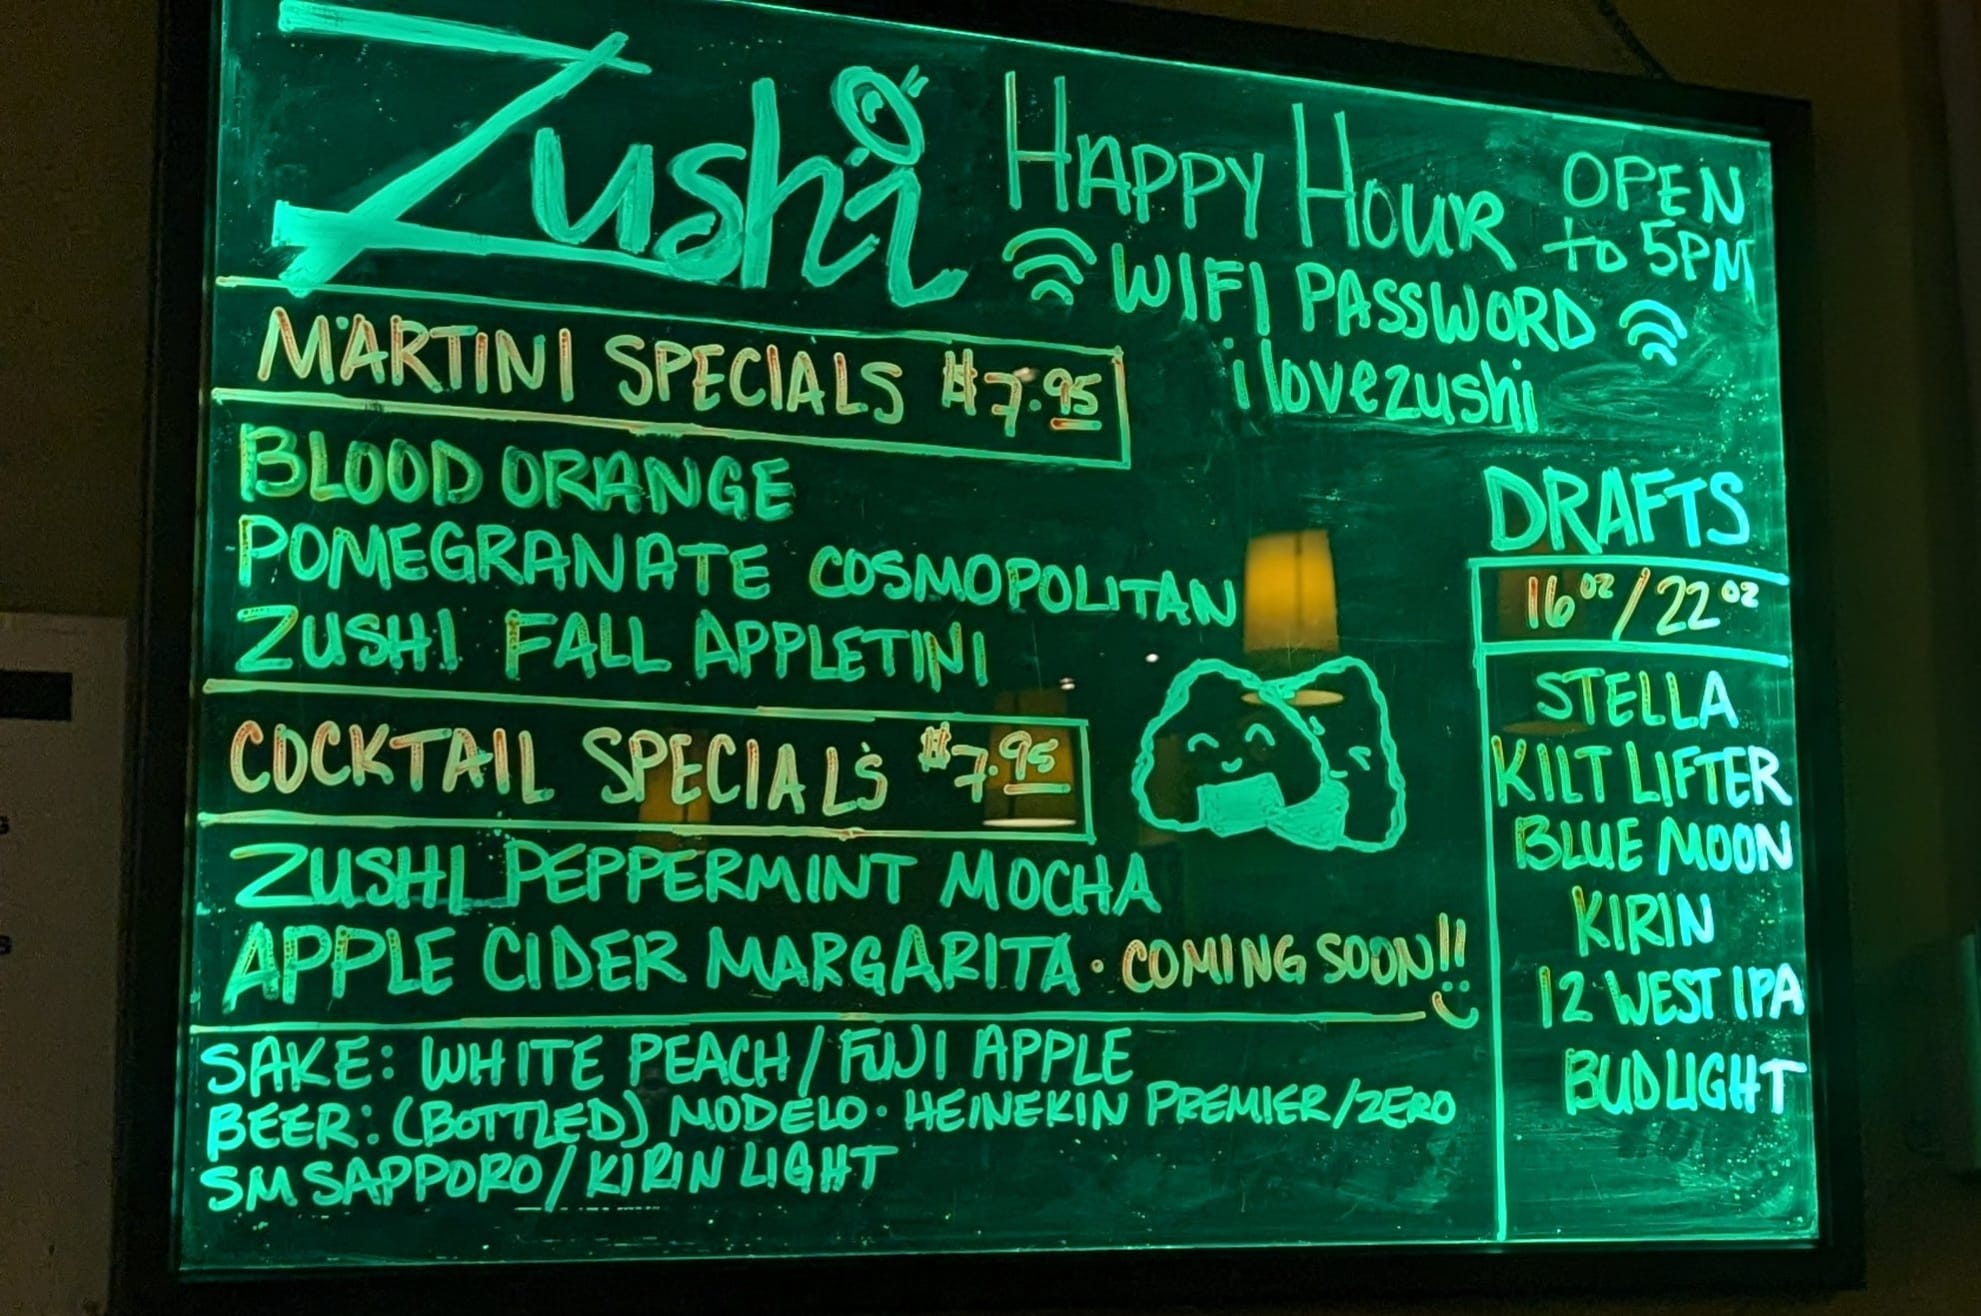 Zushi
HAPPY HOUR OPEN to 5PM
WIFI PASSWORD
ilovezushi
MARTINI SPECIALS $7.95
BLOOD ORANGE
POMEGRANATE COSMOPOLITAN
ZUSHI FALL APPLETINI
COCKTAIL SPECIALS $7.95
ZUSHI PEPPERMINT MOCHA
APPLE CIDER MARGARITA · COMING SOON!!
SAKE: WHITE PEACH/FUJI APPLE
BEER: (BOTTLED) MODELO · HEINEKIN PREMIER/ZERO
SM SAPPORO/KIRIN LIGHT
DRAFTS
16oz/22oz
STELLA
KILT LIFTER
BLUE MOON
KIRIN
12 WEST IPA
BUD LIGHT